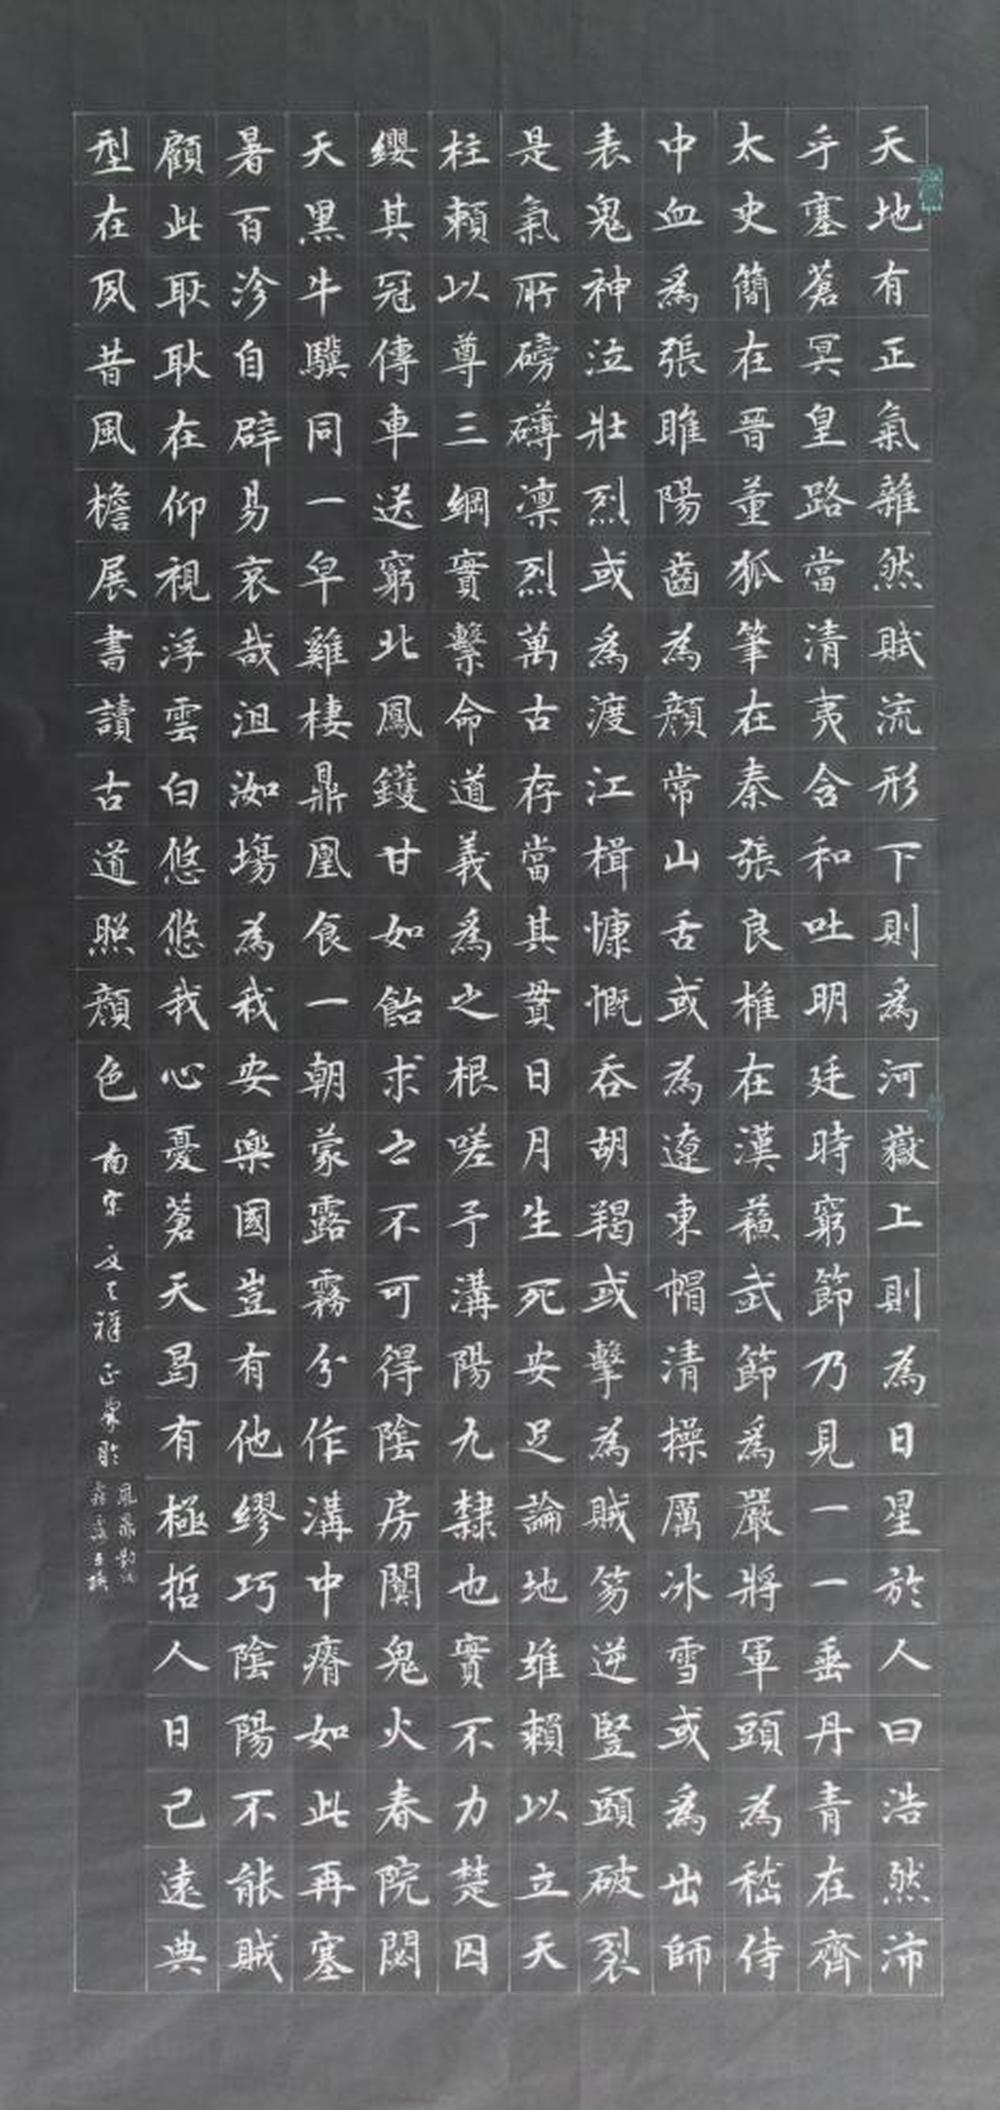 天地有正氣雜然賦流形下則爲河嶽上則為日星於人曰浩然沛
乎塞蒼冥皇路當清夷含和吐明廷時窮節乃見一一垂丹青在齊
太史簡在晉董狐筆在秦張良椎在漢蘇武節爲嚴將軍頭為嵇侍
中血爲張睢陽齒為顏常山舌或為遼東帽清操厲冰雪或爲出師
表鬼神泣壯烈或爲渡江楫慷慨吞胡羯或擊為賊笏逆豎頭破裂
是氣所磅礴凜烈萬古存當其貫日月生死安足論地維賴以立天
柱賴以尊三綱實繫命道義爲之根嗟予溝陽九隸也實不力楚囚
纓其冠傳車送窮北鳳鑊甘如飴求之不可得陰房闃鬼火春院閟
天黑牛驥同一皁雞棲鼎凰食一朝蒙露霧分作溝中瘠如此再塞
暑百沴自辟易哀哉沮洳場為我安樂國豈有他繆巧陰陽不能賊
顧此耿耿在仰視浮雲白悠悠我心憂蒼天曷有極哲人日已遠典
型在夙昔風檐展書讀古道照顏色
南宋文天祥正氣歌